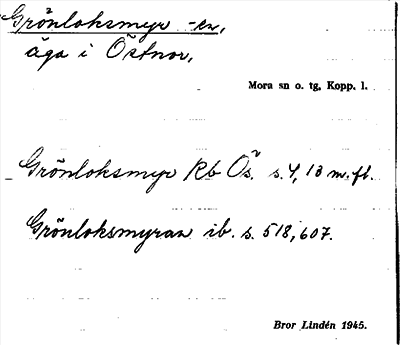 Grönloksmyr -en,
äga i Östnor.
Mora sn o. tg, Kopp. l.
Grönloksmyr Rb Ös. s. 4, 13 m. fl.
Grönloksmyran ib. s. 518, 607.
Bror Lindén 1945.